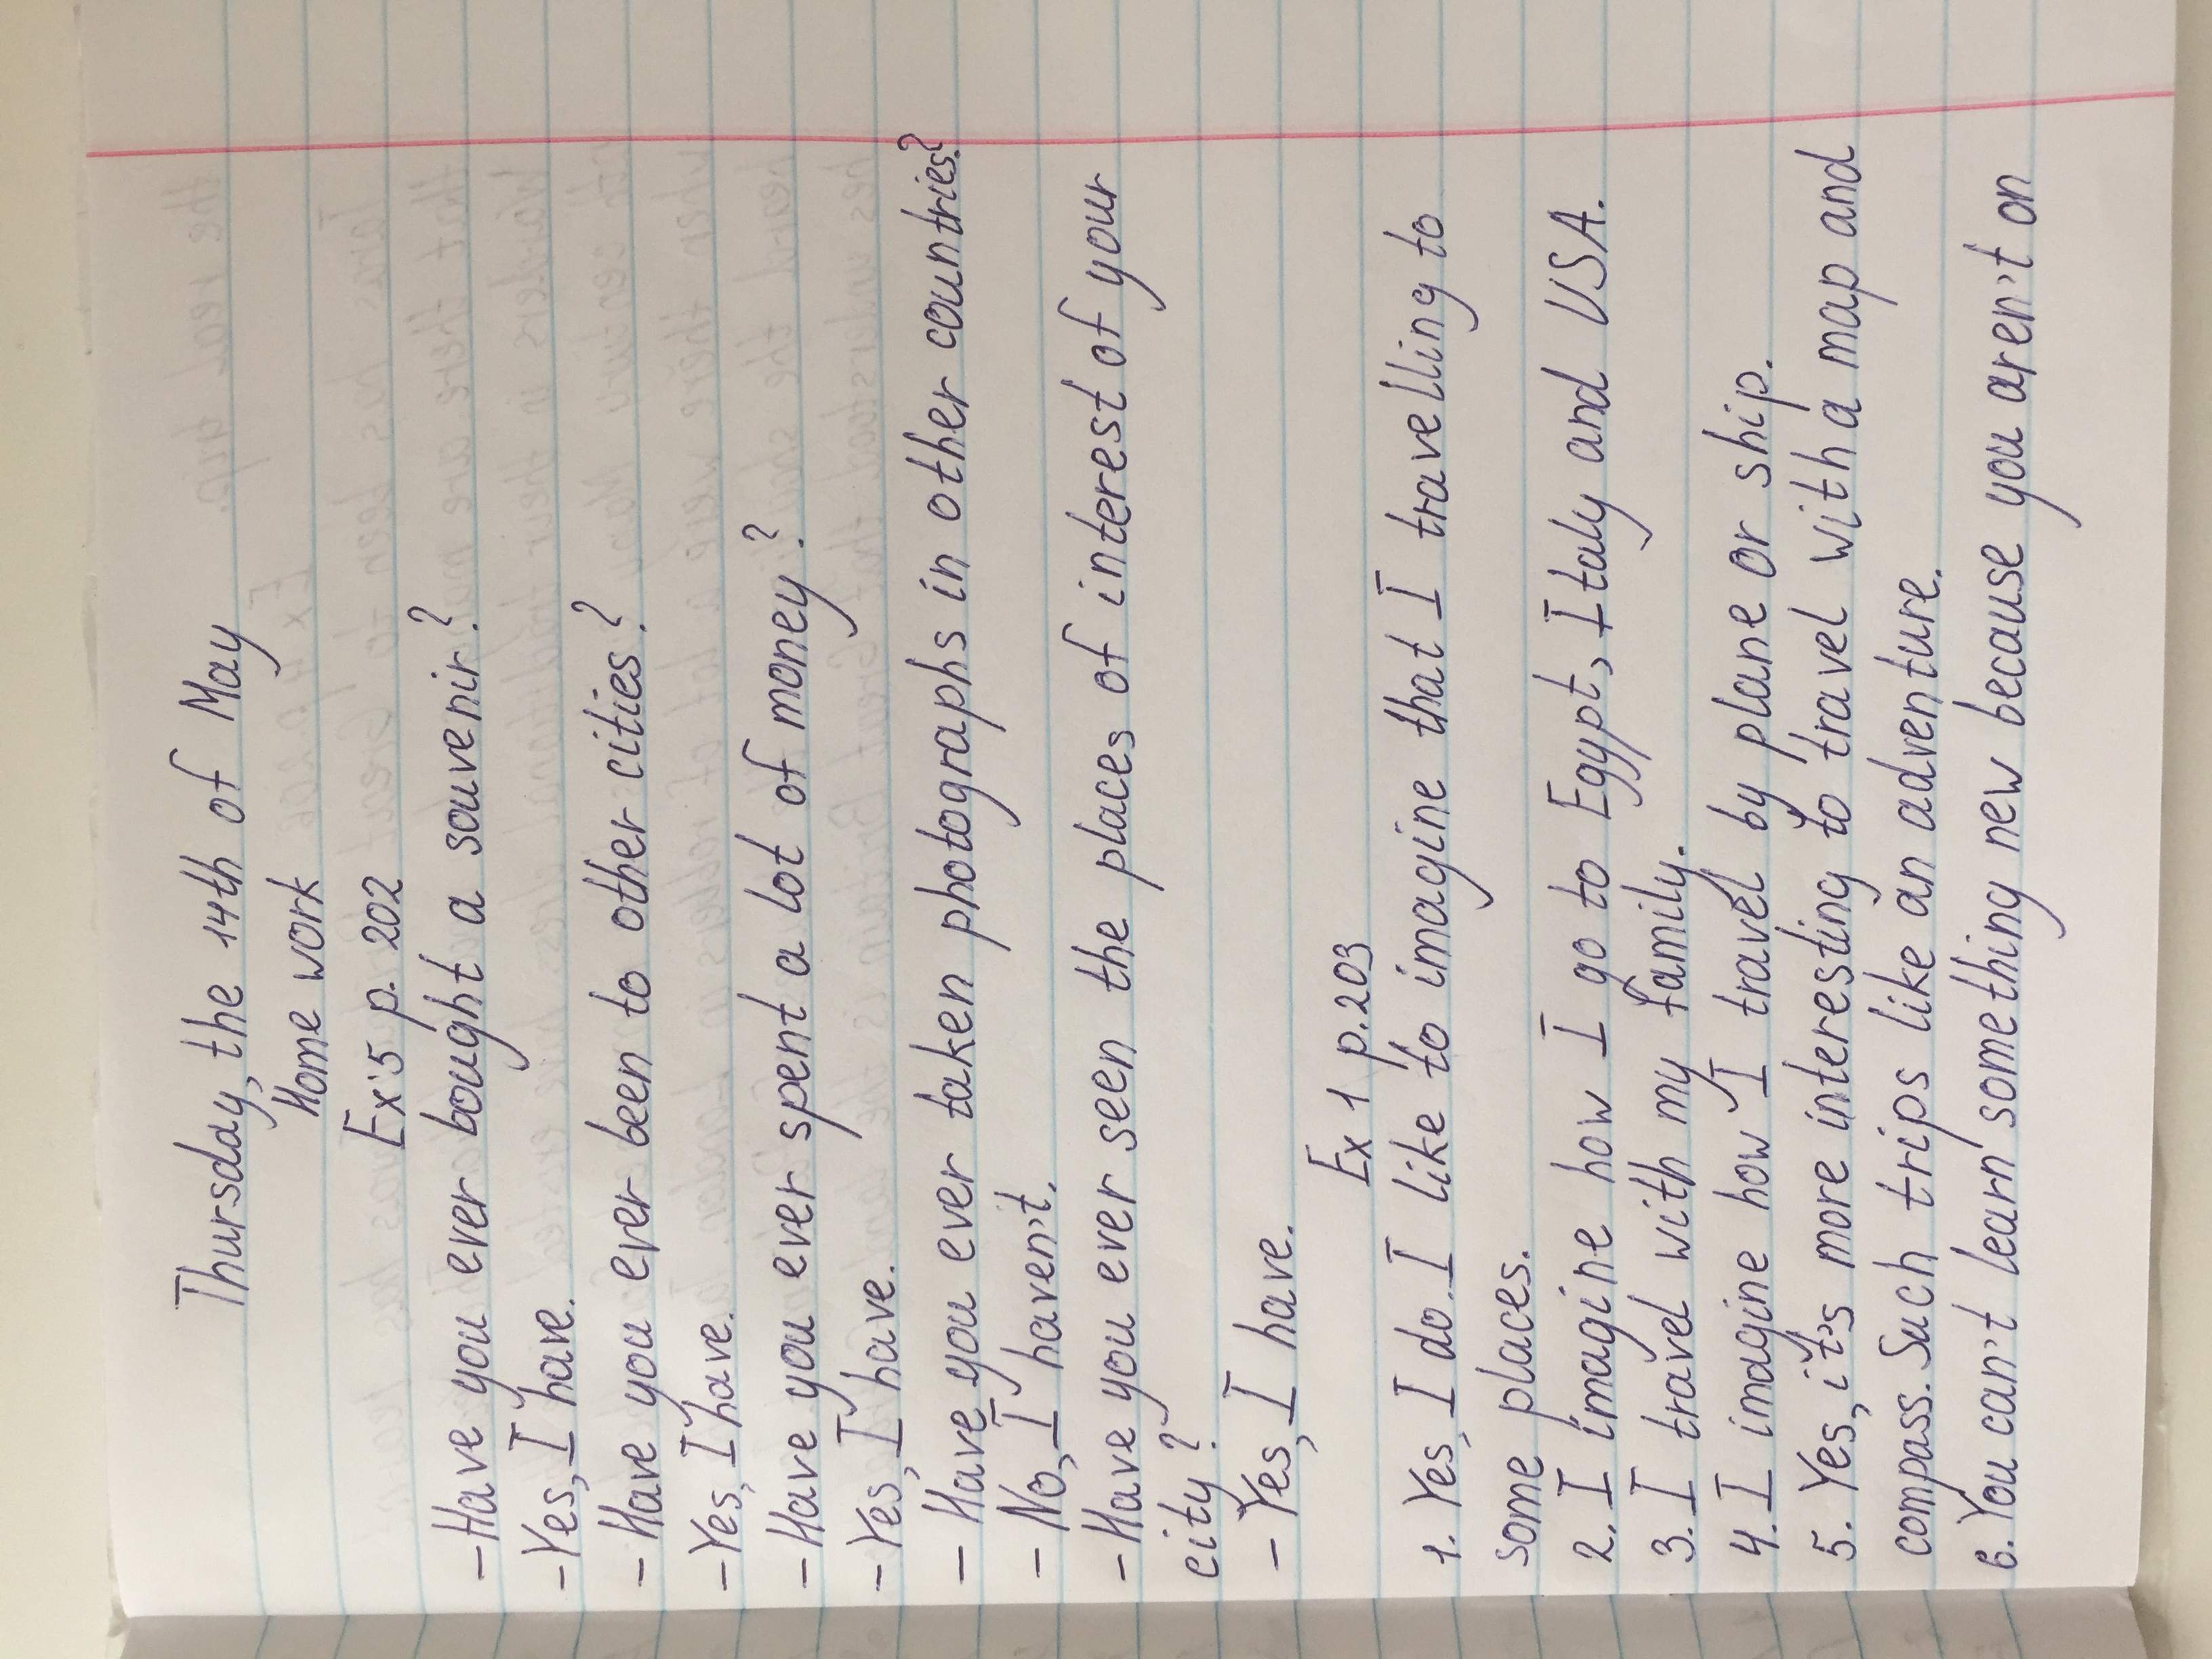 Thursday, the 14th of May
Home work
Ex 5 p. 202
- Have you ever bought a souvenir?
- Yes, I have.
- Have you ever been to other cities?
- Yes, I have.
- Have you ever spent a lot of money?
- Yes, I have.
- Have you ever taken photographs in other countries?
- No, I haven't.
- Have you ever seen the places of interest of your
city?
- Yes, I have.
Ex 1 p. 203
1. Yes, I do. I like to imagine that I travelling to
some places.
2. I imagine how I go to Egypt, Italy and USA.
3. I travel with my family.
4. I imagine how I travel by plane or ship.
5. Yes, it's more interesting to travel with a map and
compass. Such trips like an adventure.
6. You can't learn something new because you aren't on